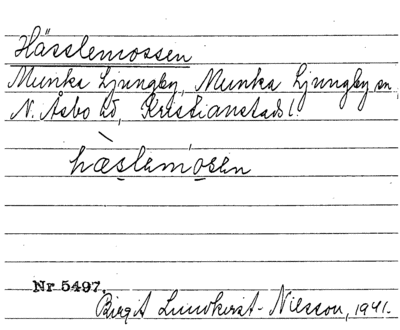 Hässlemossen
Munka Ljungby, Munka Ljungby sn,
N. Åsbo hd, Kristianstads l.
hæslemosen
Nr 5497.
Birgit Lundkvist-Nilsson, 1941.